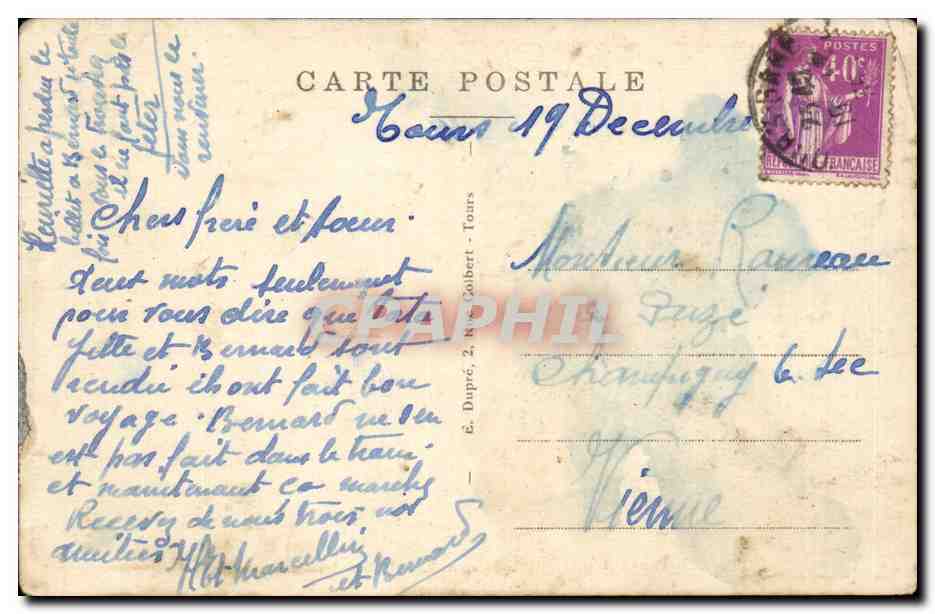 CARTE POSTALE
Tours 19 Decembre
Chers frère et soeur
Deux mots seulement
pour vous dire que
fette et Bernard sont
rendu ils ont fait bon
voyage. Bernard ne s'en
est pas fait dans le train
et maintenant ca marche
Recevez de nous trois nos
amitiés
Marcellin
et Bernard
Henriette a perdu le
billet a Bernard
fois vous le trouvez
il ne faut pas le
jeter
vous nous le
renderrer.
E. Dupré, 2, Rue Colbert - Tours
POSTES
40c
REPUBLIQUE FRANÇAISE
Monsieur
a
Champigny le sec
Vienne
CPAPHIL